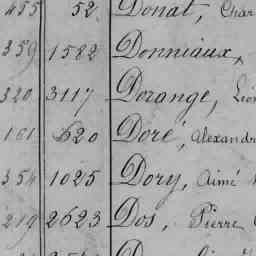 455 52. Donat, Char
359 1582 Donniaux,
320 3117 Dorange, Léon
161 620 Doré, Alexandre
354 1025 Dory, Aimé
219 2623 Dos, Pierre